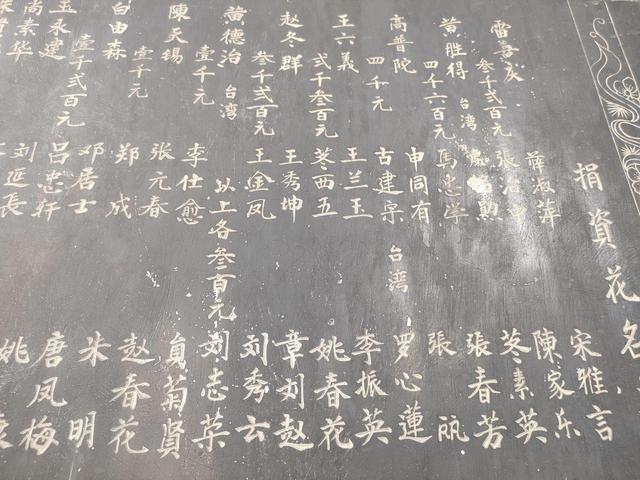 捐資花名
雷喜庆 叁千弍百元
黄胜得 台湾 四千六百元
高普陀 四千元
王六義 弍千叁百元
赵冬群 叁千弍百元
黄德治 台湾 壹千元
陳天锡 壹千元
白由森
王永建 壹千弍百元
尚素华
薛淑萍
馬忠学
申同有
台湾
古建宗
王兰玉
西五
王秀坤
王金凤
以上各叁百元
李仕愈
张元春
郑成
邓居士
吕忠轩
刘延長
宋雅言
陳家乐
素英
張春芳
張丽
罗心蓮
李振英
姚春花
章刘赵
刘秀云
刘志荣
菊賢
赵春花
朱明
唐凤梅
姚